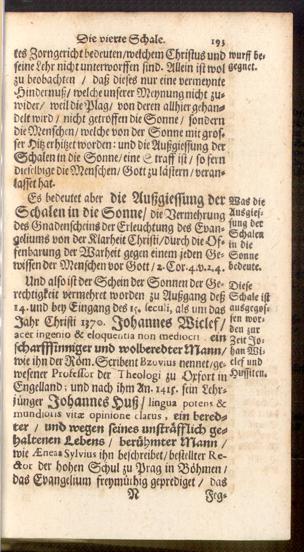 Die vierte Schale. 193
tes Zorngericht bedeuten/welchem Christus und
seine Lehr nicht unterworffen sind. Allein ist wol
zu beobachten / daß dieses nur eine vermeynte
Hindernuß/ welche unserer Meynung nicht zu-
wider/ weil die Plag/ von deren allhier gehan-
delt wird/ nicht getroffen die Sonne/ sondern
die Menschen/ welche von der Sonne mit gros-
ser Hitz erhitzet worden: und die Außgiessung der
Schalen in die Sonne/ eine Straff ist/ so fern
dieselbige die Menschen/ Gott zu lästern/ veran-
lasset hat.
Es bedeutet aber die Außgiessung der
Schalen in die Sonne/ die Vermehrung
des Gnadenscheins der Erleuchtung des Evan-
geliums von der Klarheit Christi/durch die Of-
fenbarung der Warheit gegen einem jeden Ge-
wissen der Menschen vor Gott / 2. Cor. 4. v. 2. 4.
Und also ist der Schein der Sonnen der Ge-
rechtigkeit vermehret worden zu Außgang deß
14. und bey Eingang des 15. seculi, als um das
Jahr Christi 1370. Johannes Wiclef/
acer ingenio & eloquentia non mediocri ein
scharffsinniger und wolberedter Mann/
wie ihn der Röm. Scribent Bzovius nennet/ge-
wesener Professor der Theologi zu Oxfort in
Engelland; und nach ihm An. 1415. sein Lehr-
jünger Johannes Huß/ lingua potens &
mundioris vitæ opinione clarus, ein bered-
ter / und wegen seines unsträfflich ge-
haltenen Lebens / berühmter Mann /
wie Æneas Sylvius ihn beschreibet/ bestellter Re-
ctor der hohen Schul zu Prag in Böhmen/
das Evangelium freymüthig geprediget / das
N Feg-
wurff be-
gegnet.
Was die
Außgies-
sung der
Schalen
in die
Sonne
bedeute.
Diese
Schale ist
ausgegos-
sen wor-
den zur
Zeit Jo-
han Wi-
clef und
Hussiten.